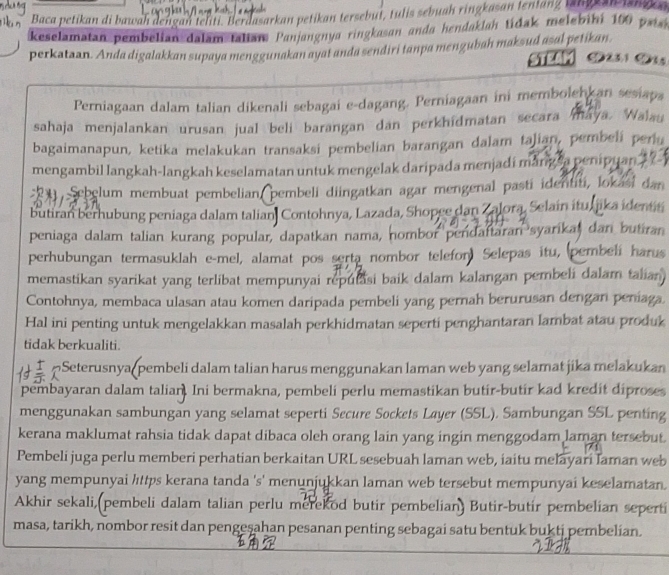 Baca petikan di bawah dengan teliti. Berdasarkan petikan tersebut, tulis sebuah ringkasan tentang langkah-langkah
keselamatan pembelian dalam talian. Panjangnya ringkasan anda hendaklah tidak melebihi 100 patah
perkataan. Anda digalakkan supaya menggunakan ayat anda sendiri tanpa mengubah maksud asal petikan.
STEAM 2.3.1
Perniagaan dalam talian dikenali sebagai e-dagang. Perniagaan ini membolehkan sesiapa
sahaja menjalankan urusan jual beli barangan dan perkhidmatan secara maya. Walau
bagaimanapun, ketika melakukan transaksi pembelian barangan dalam talian, pembeli perlu
mengambil langkah-langkah keselamatan untuk mengelak daripada menjadi mangsa penipuan.
Sebelum membuat pembelian, pembeli diingatkan agar mengenal pasti identiti, lokasi dan
资料
butiran berhubung peniaga dalam talian. Contohnya, Lazada, Shopee dan Zalora. Selain itu, jika identiti
peniaga dalam talian kurang popular, dapatkan nama, nombor pendaftaran syarikat dan butiran
perhubungan termasuklah e-mel, alamat pos serta nombor telefon. Selepas itu, pembeli harus
memastikan syarikat yang terlibat mempunyai reputasi baik dalam kalangan pembeli dalam talian.
Contohnya, membaca ulasan atau komen daripada pembeli yang pernah berurusan dengan peniaga.
Hal ini penting untuk mengelakkan masalah perkhidmatan seperti penghantaran lambat atau produk
tidak berkualiti.
Seterusnya, pembeli dalam talian harus menggunakan laman web yang selamat jika melakukan
pembayaran dalam talian. Ini bermakna, pembeli perlu memastikan butir-butir kad kredit diproses
menggunakan sambungan yang selamat seperti Secure Sockets Layer (SSL). Sambungan SSL penting
kerana maklumat rahsia tidak dapat dibaca oleh orang lain yang ingin menggodam laman tersebut.
Pembeli juga perlu memberi perhatian berkaitan URL sesebuah laman web, iaitu melayari laman web
yang mempunyai https kerana tanda 's' menunjukkan laman web tersebut mempunyai keselamatan.
Akhir sekali, pembeli dalam talian perlu merekod butir pembelian. Butir-butir pembelian seperti
masa, tarikh, nombor resit dan pengesahan pesanan penting sebagai satu bentuk bukti pembelian.